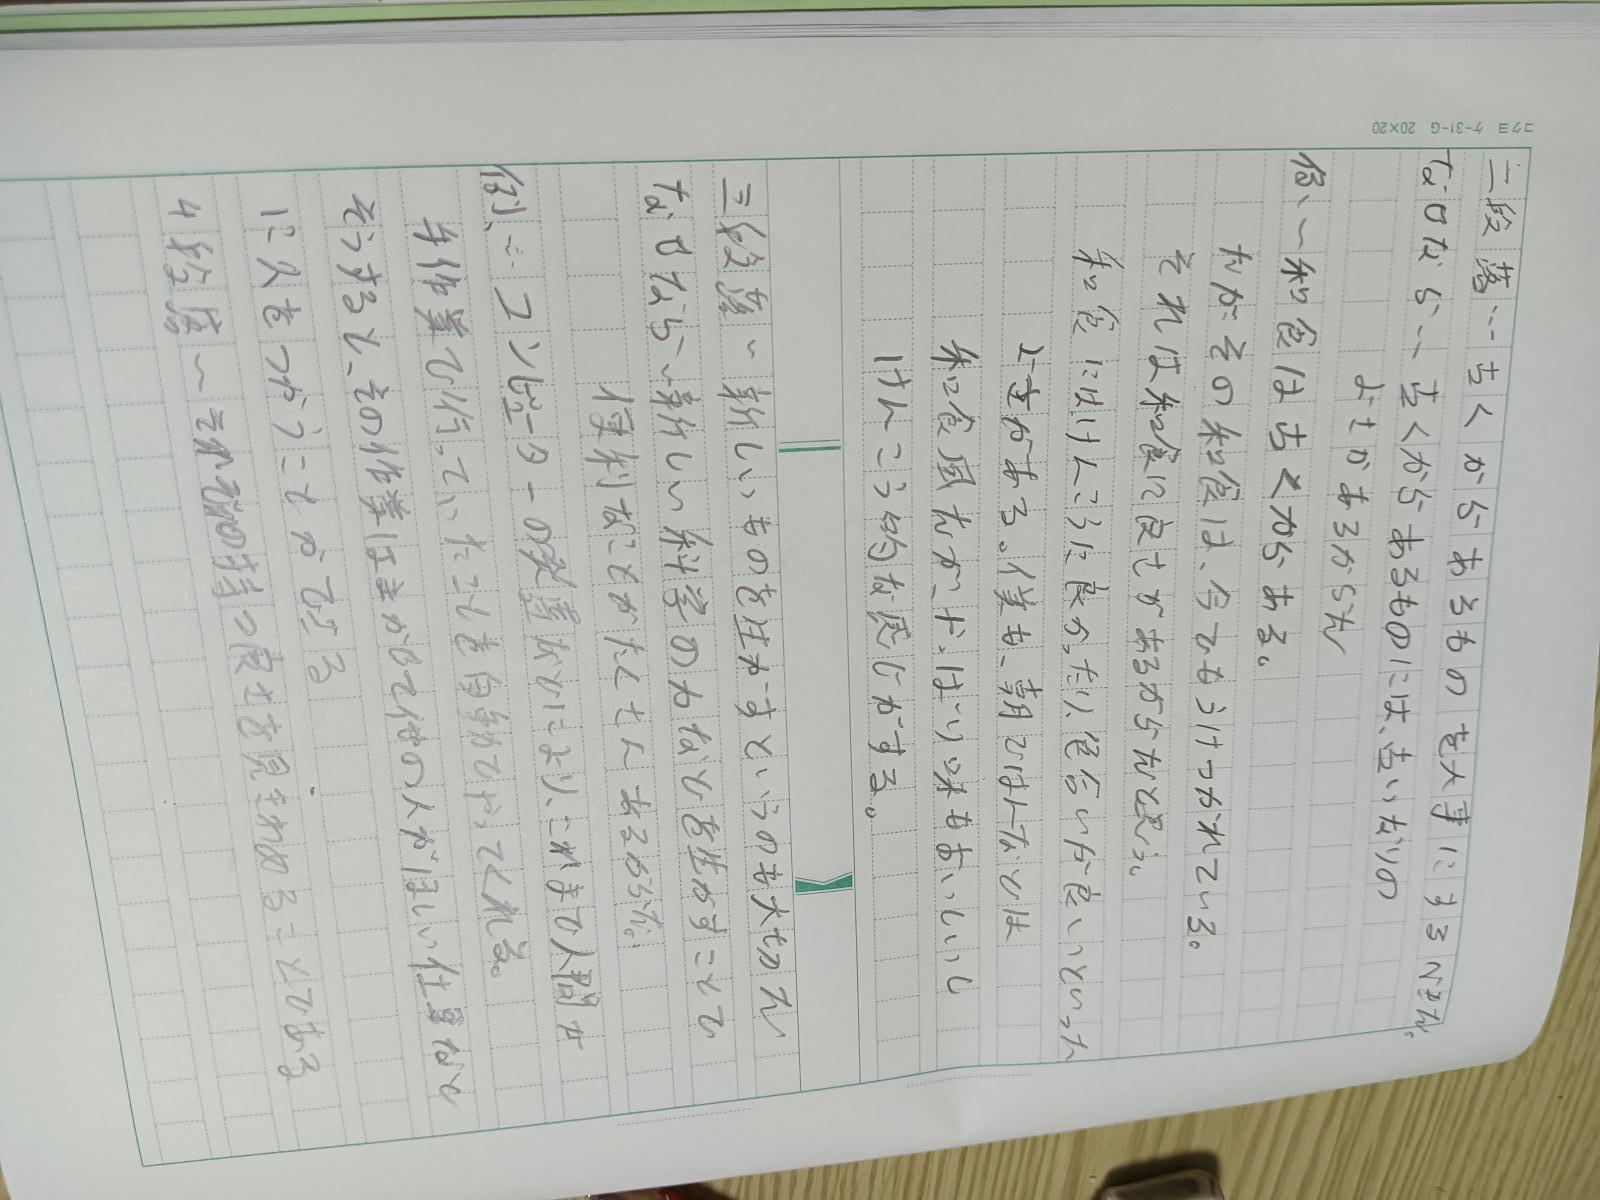 コクヨ ケ-31-G 20×20
二段落…古くからあるものを大事にするべきだ。
なぜなら…古くからあるものには、古いなりの
よさがあるからだ
例、～和食は古くからある。
だがその和食は、今でもうけつがれている。
それは和食に良さがあるからだと思う。
和食にはけんこうに良かったり、色合いが良いといった
よさがある。僕も、朝ごはんなどは
和食風だが、やっぱり味もおいしいし
けんこう的な感じがする。
三段落～新しいものを生かすというのも大切だ
なぜなら～新しい科学の力などを生かすことで
便利なことがたくさんあるからだ。
例、…コンピューターの発達などにより、これまで人間が
手作業で行っていたことを自動でやってくれる。
そうすると、その作業はまかせて他の人がほしい仕事など
に人をつかうことができる
4段落～それぞれの持つ良さを見きわめることである